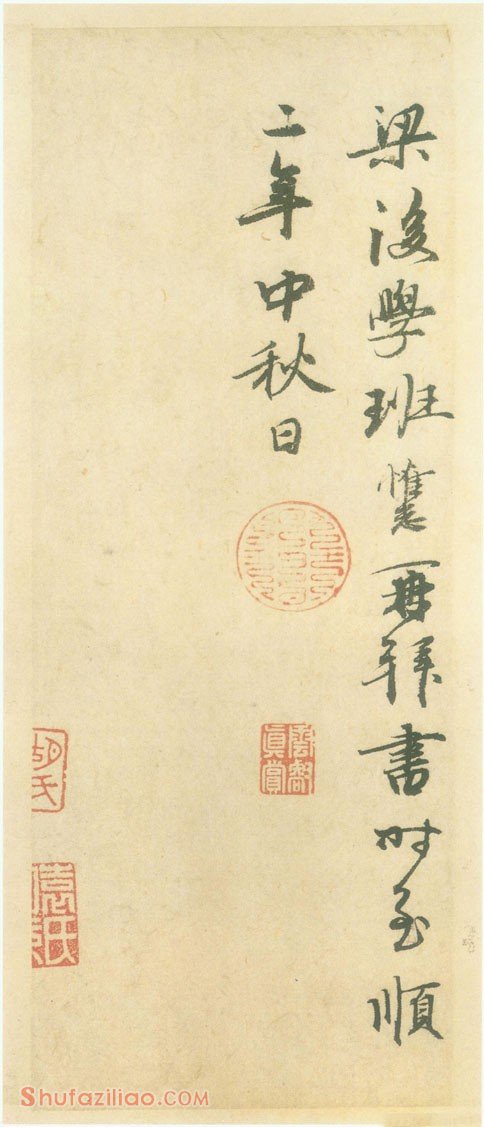 梁後學班惟志再拜書時至順
二年中秋日
真賞
胡氏
袁氏
Shufaziliao.COM